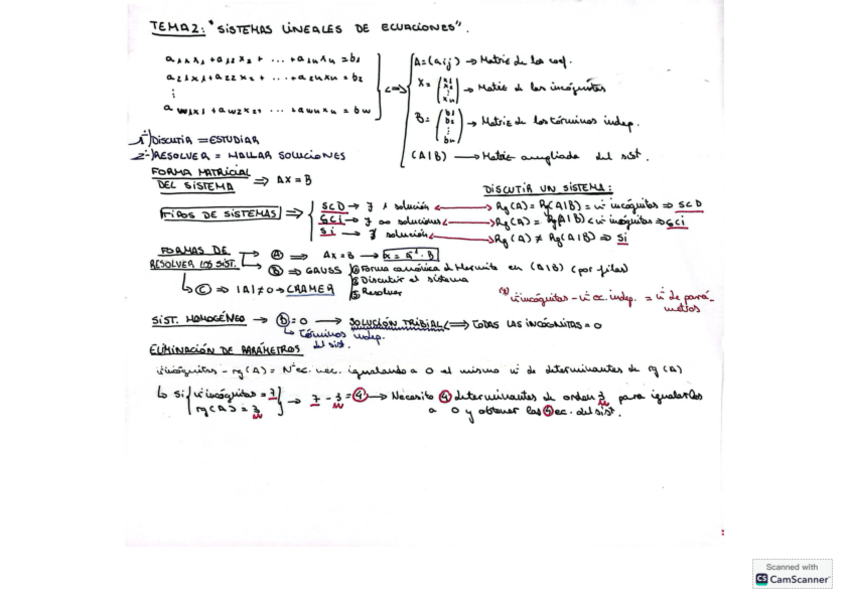 TEMA 2: "SISTEMAS LINEALES DE ECUACIONES".
a11x1 + a12x2 + ... + a1nxn = b1
a21x1 + a22x2 + ... + a2nxn = b2
⋮
am1x1 + am2x2 + ... + amnxn = bm
<=> A = (aij) → Matriz de los coef.
X = (x1 x2 ⋮ xn) → Matriz de las incógnitas
B = (b1 b2 ⋮ bm) → Matriz de los términos indep.
(A|B) → Matriz ampliada del sist.
1º) DISCUTIR = ESTUDIAR
2º) RESOLVER = HALLAR SOLUCIONES
FORMA MATRICIAL DEL SISTEMA ⇒ AX = B
DISCUTIR UN SISTEMA:
TIPOS DE SISTEMAS ⇒
SCD → ∃ 1 solución ↔ Rg(A) = Rg(A|B) = nº incógnitas ⇒ SCD
SCI → ∃ ∞ soluciones ↔ Rg(A) = Rg(A|B) < nº incógnitas ⇒ SCI
SI → ∄ solución ↔ Rg(A) ≠ Rg(A|B) ⇒ SI
FORMAS DE RESOLVER LOS SIST.
A ⇒ AX = B → X = A⁻¹·B
B ⇒ GAUSS
1 Forma canónica de Hermite en (A|B) (por filas)
2 Discutir el sistema
3 Resolver
C ⇒ |A| ≠ 0 → CRAMER
nº incógnitas - nº ec. indep. = nº de pará-
metros
SIST. HOMOGÉNEO → B = 0 → SOLUCIÓN TRIBIAL ⟺ TODAS LAS INCÓGNITAS = 0
Términos indep.
del sist.
ELIMINACIÓN DE PARÁMETROS
nº incógnitas - rg(A) = Nº ec. nec. igualando a 0 el mismo nº de determinantes de rg(A)
Si nº incógnitas = 7
rg(A) = 3
→ 7 - 3 = 4 → Necesito 4 determinantes de orden 3 para igualarlos
a 0 y obtener las 4 ec. del sist.
Scanned with
CS CamScanner